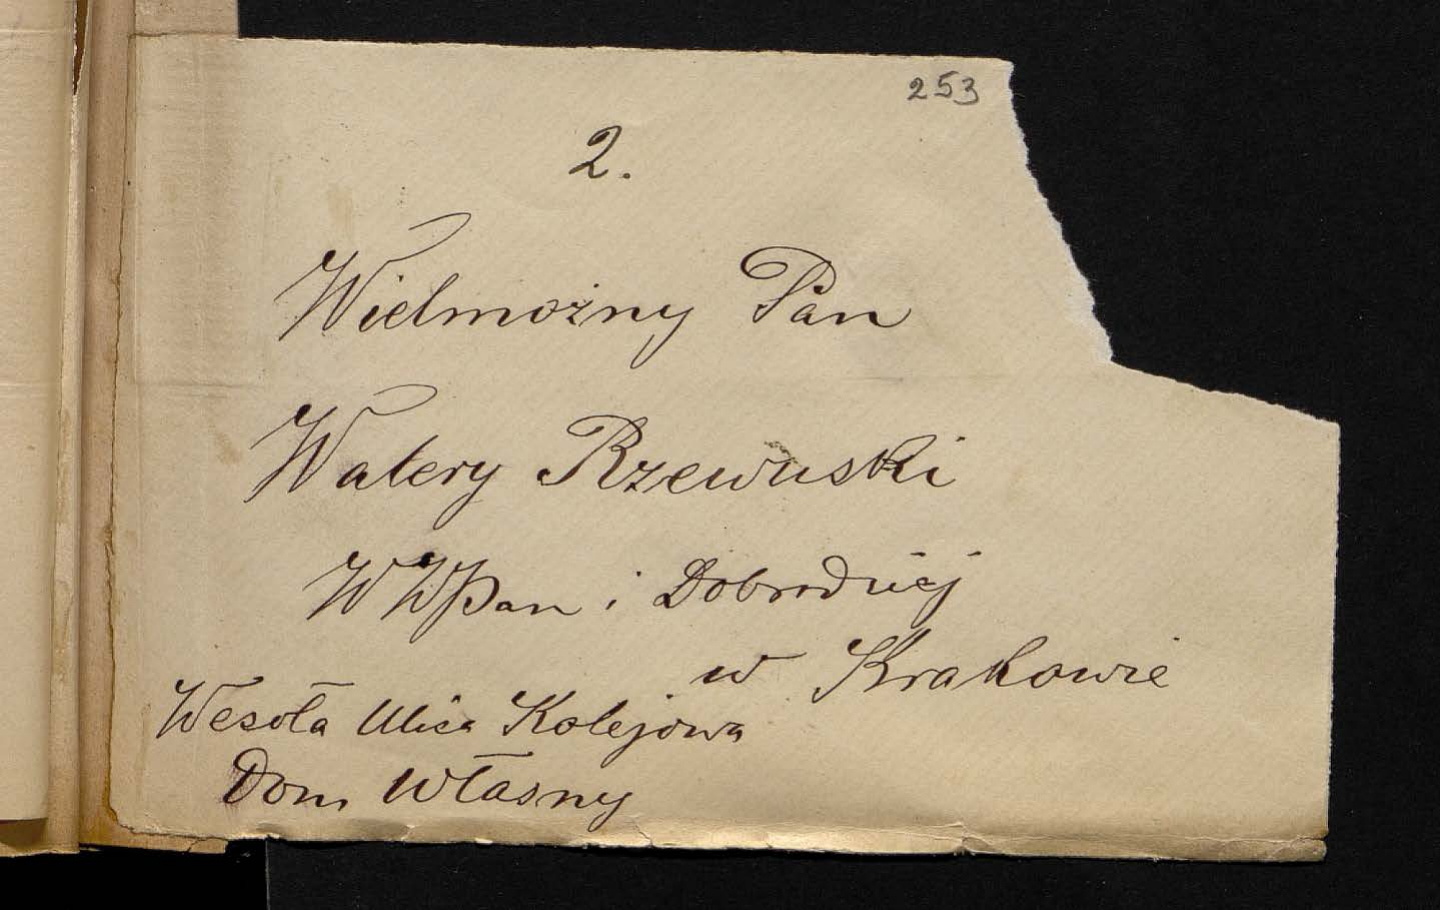 253
2.
Wielmożny Pan
Walery Rzewuski
WWPan i Dobrodziej
w Krakowie
Wesoła Ulica Kolejowa
Dom Własny